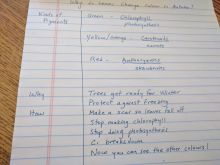 Why do trees Change Colour in Autumn?
Kinds of Green - Chlorophyll
Pigments photosynthesis
Yellow/orange - Carotenoids
carrots
Red - Anthocyanins
strawberries
Why Trees get ready for Winter
Protect against freezing
How Make a scar so leaves fall off
Stop making chlorophyll
Stop doing photosynthesis
breakdown
Now you can see the other colours!